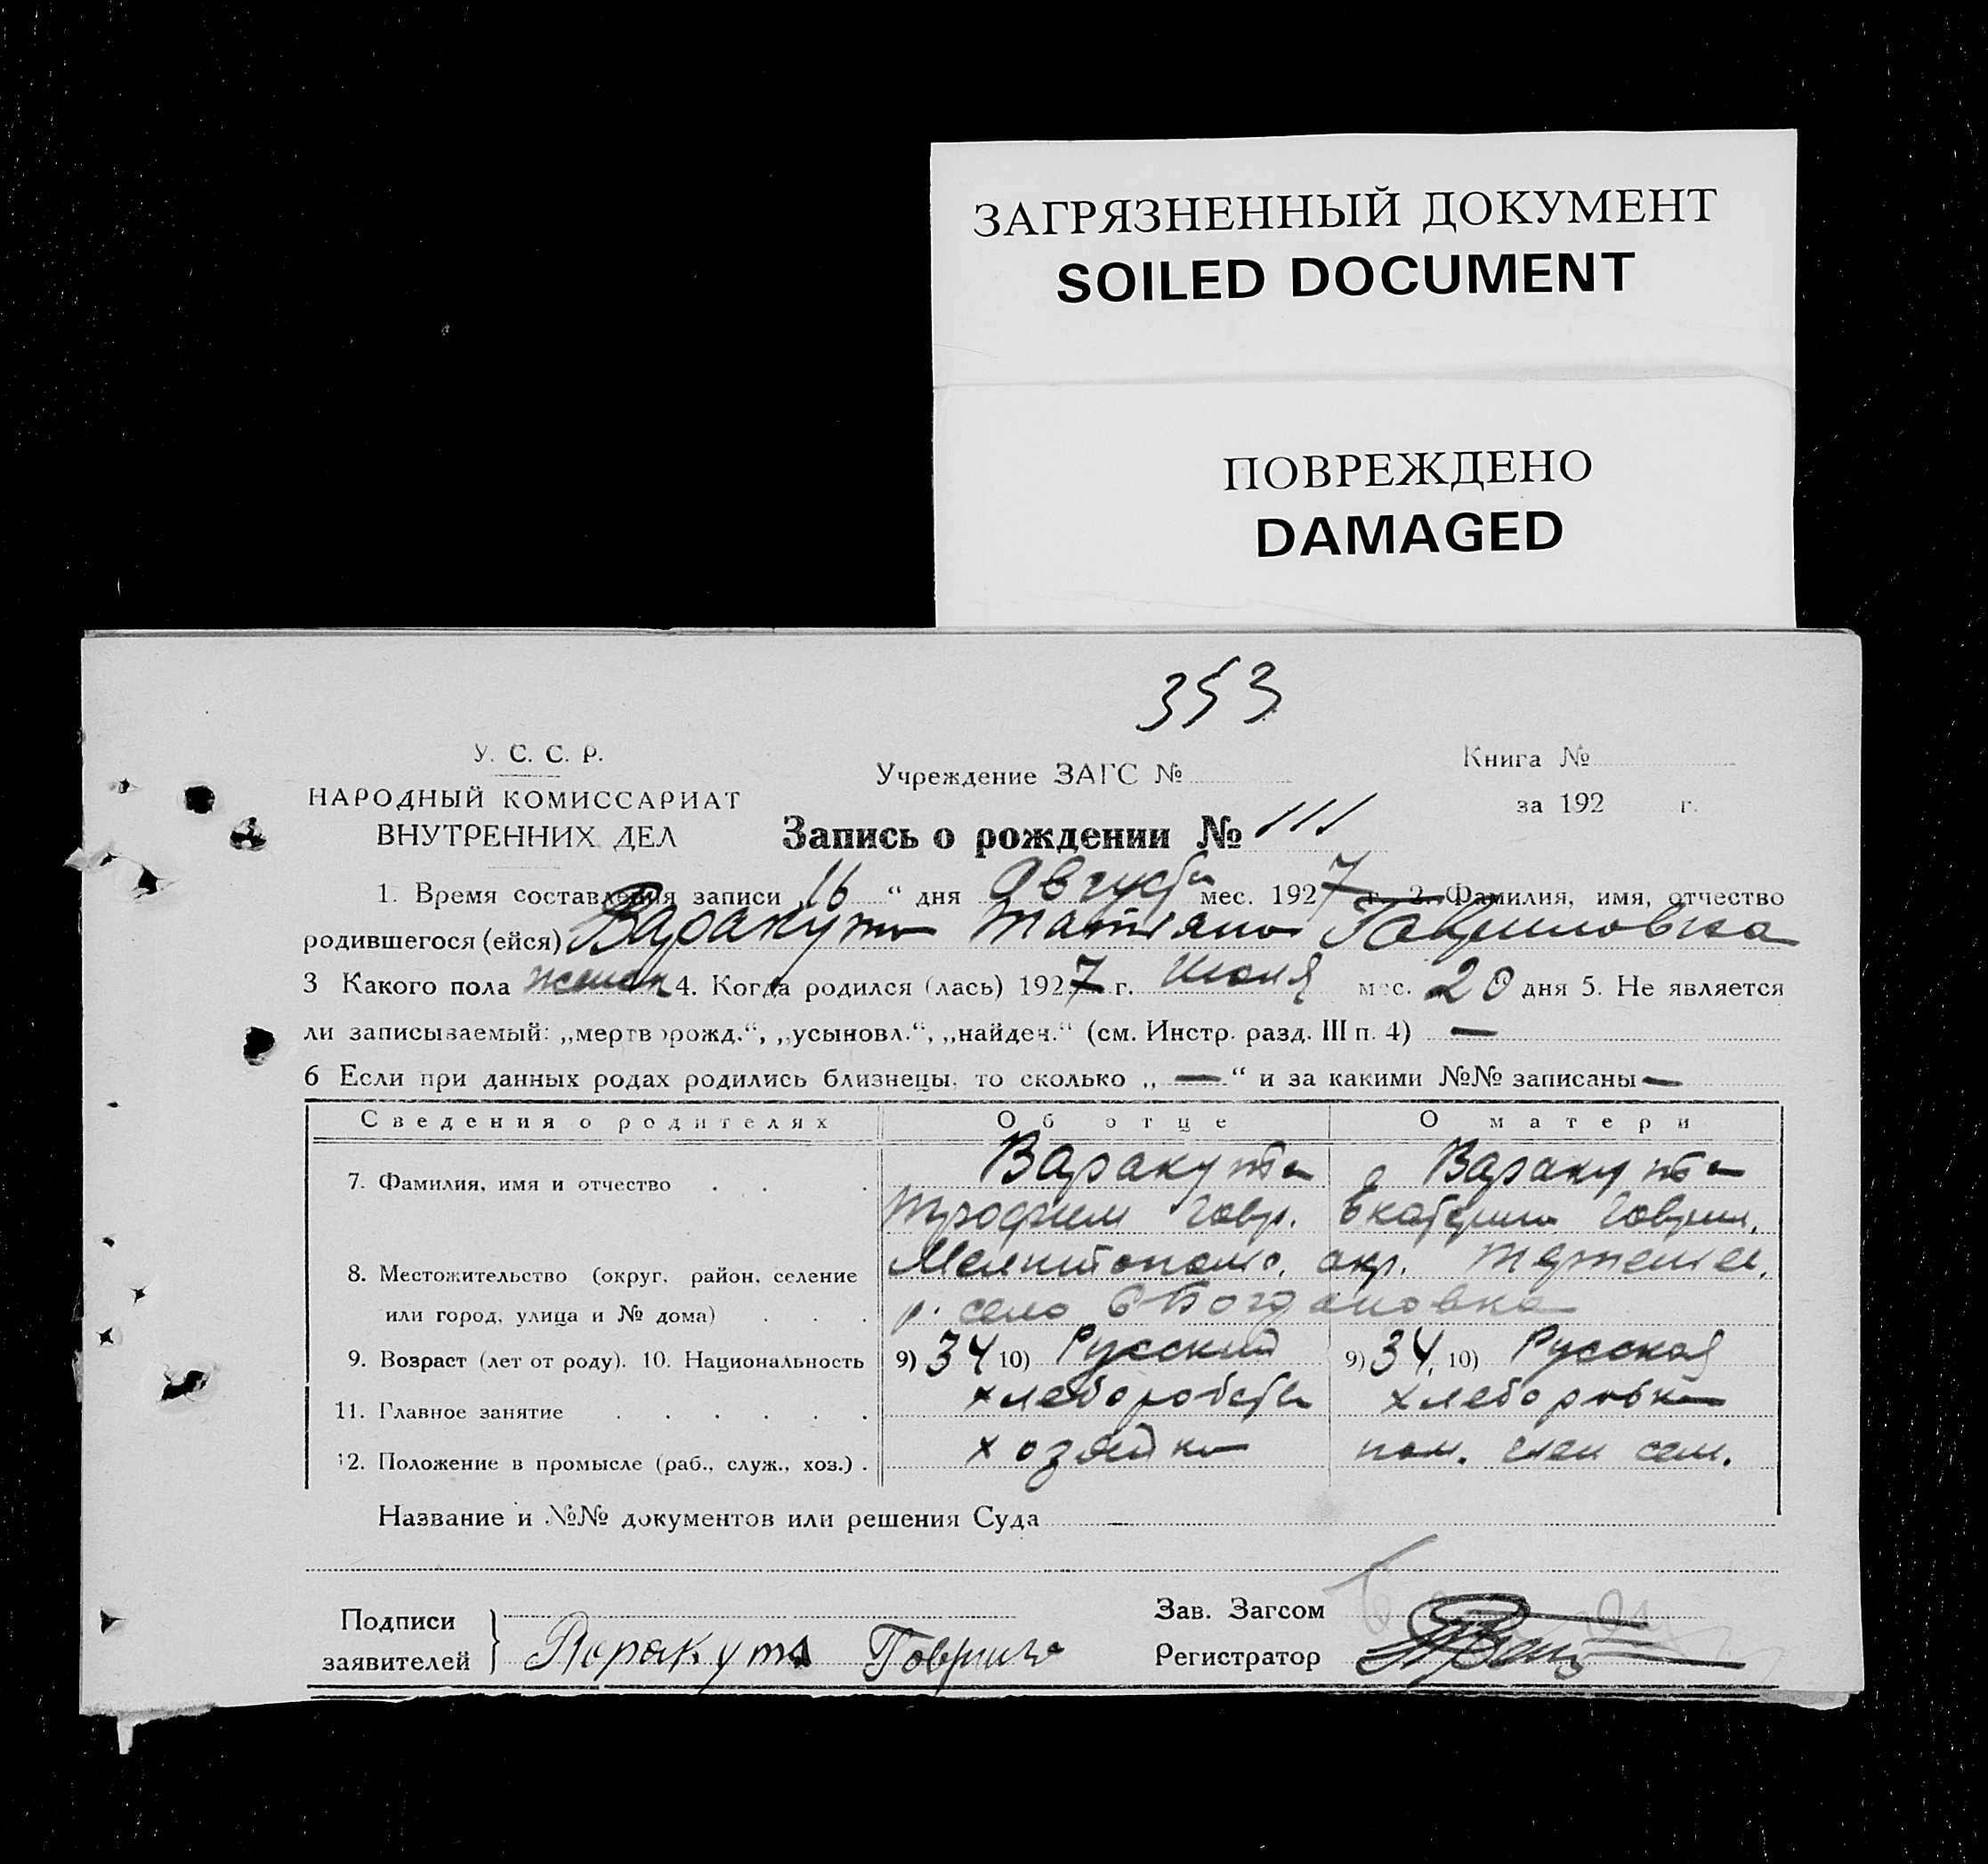 ЗАГРЯЗНЕННЫЙ ДОКУМЕНТ
SOILED DOCUMENT
ПОВРЕЖДЕНО
DAMAGED
353
У. С. С. Р.
НАРОДНЫЙ КОМИССАРИАТ
ВНУТРЕННИХ ДЕЛ
Учреждение ЗАГС №
Книга №
за 192 г.
Запись о рождении № 111
1. Время составления записи „16“ дня Августа мес. 1927 г. 2. Фамилия, имя, отчество
родившегося (ейся) Варакута Татиана Гавриловна
3 Какого пола женск 4. Когда родился (лась) 1927 г. Июля мес. 20 дня 5. Не является
ли записываемый: „мертворожд.“, „усыновл.“, „найден.“ (см. Инстр. разд. III п. 4) —
6 Если при данных родах родились близнецы, то сколько „—“ и за какими №№ записаны —
Сведения о родителях Об отце О матери
7. Фамилия, имя и отчество Варакута Варакута
Трофим Гавр. Екатерина Гаврил.
8. Местожительство (округ, район, селение Мелитопольс. окр.
или город, улица и № дома) р. село Богдановка
9. Возраст (лет от роду). 10. Национальность 9) 34 10) Русский 9) 34, 10) Русская
11. Главное занятие хлеборобств хлеборобка
12. Положение в промысле (раб., служ., хоз.) хозяйка пом. член сем.
Название и №№ документов или решения Суда —
Подписи
заявителей } Варакута Гаврило
Зав. Загсом
Регистратор